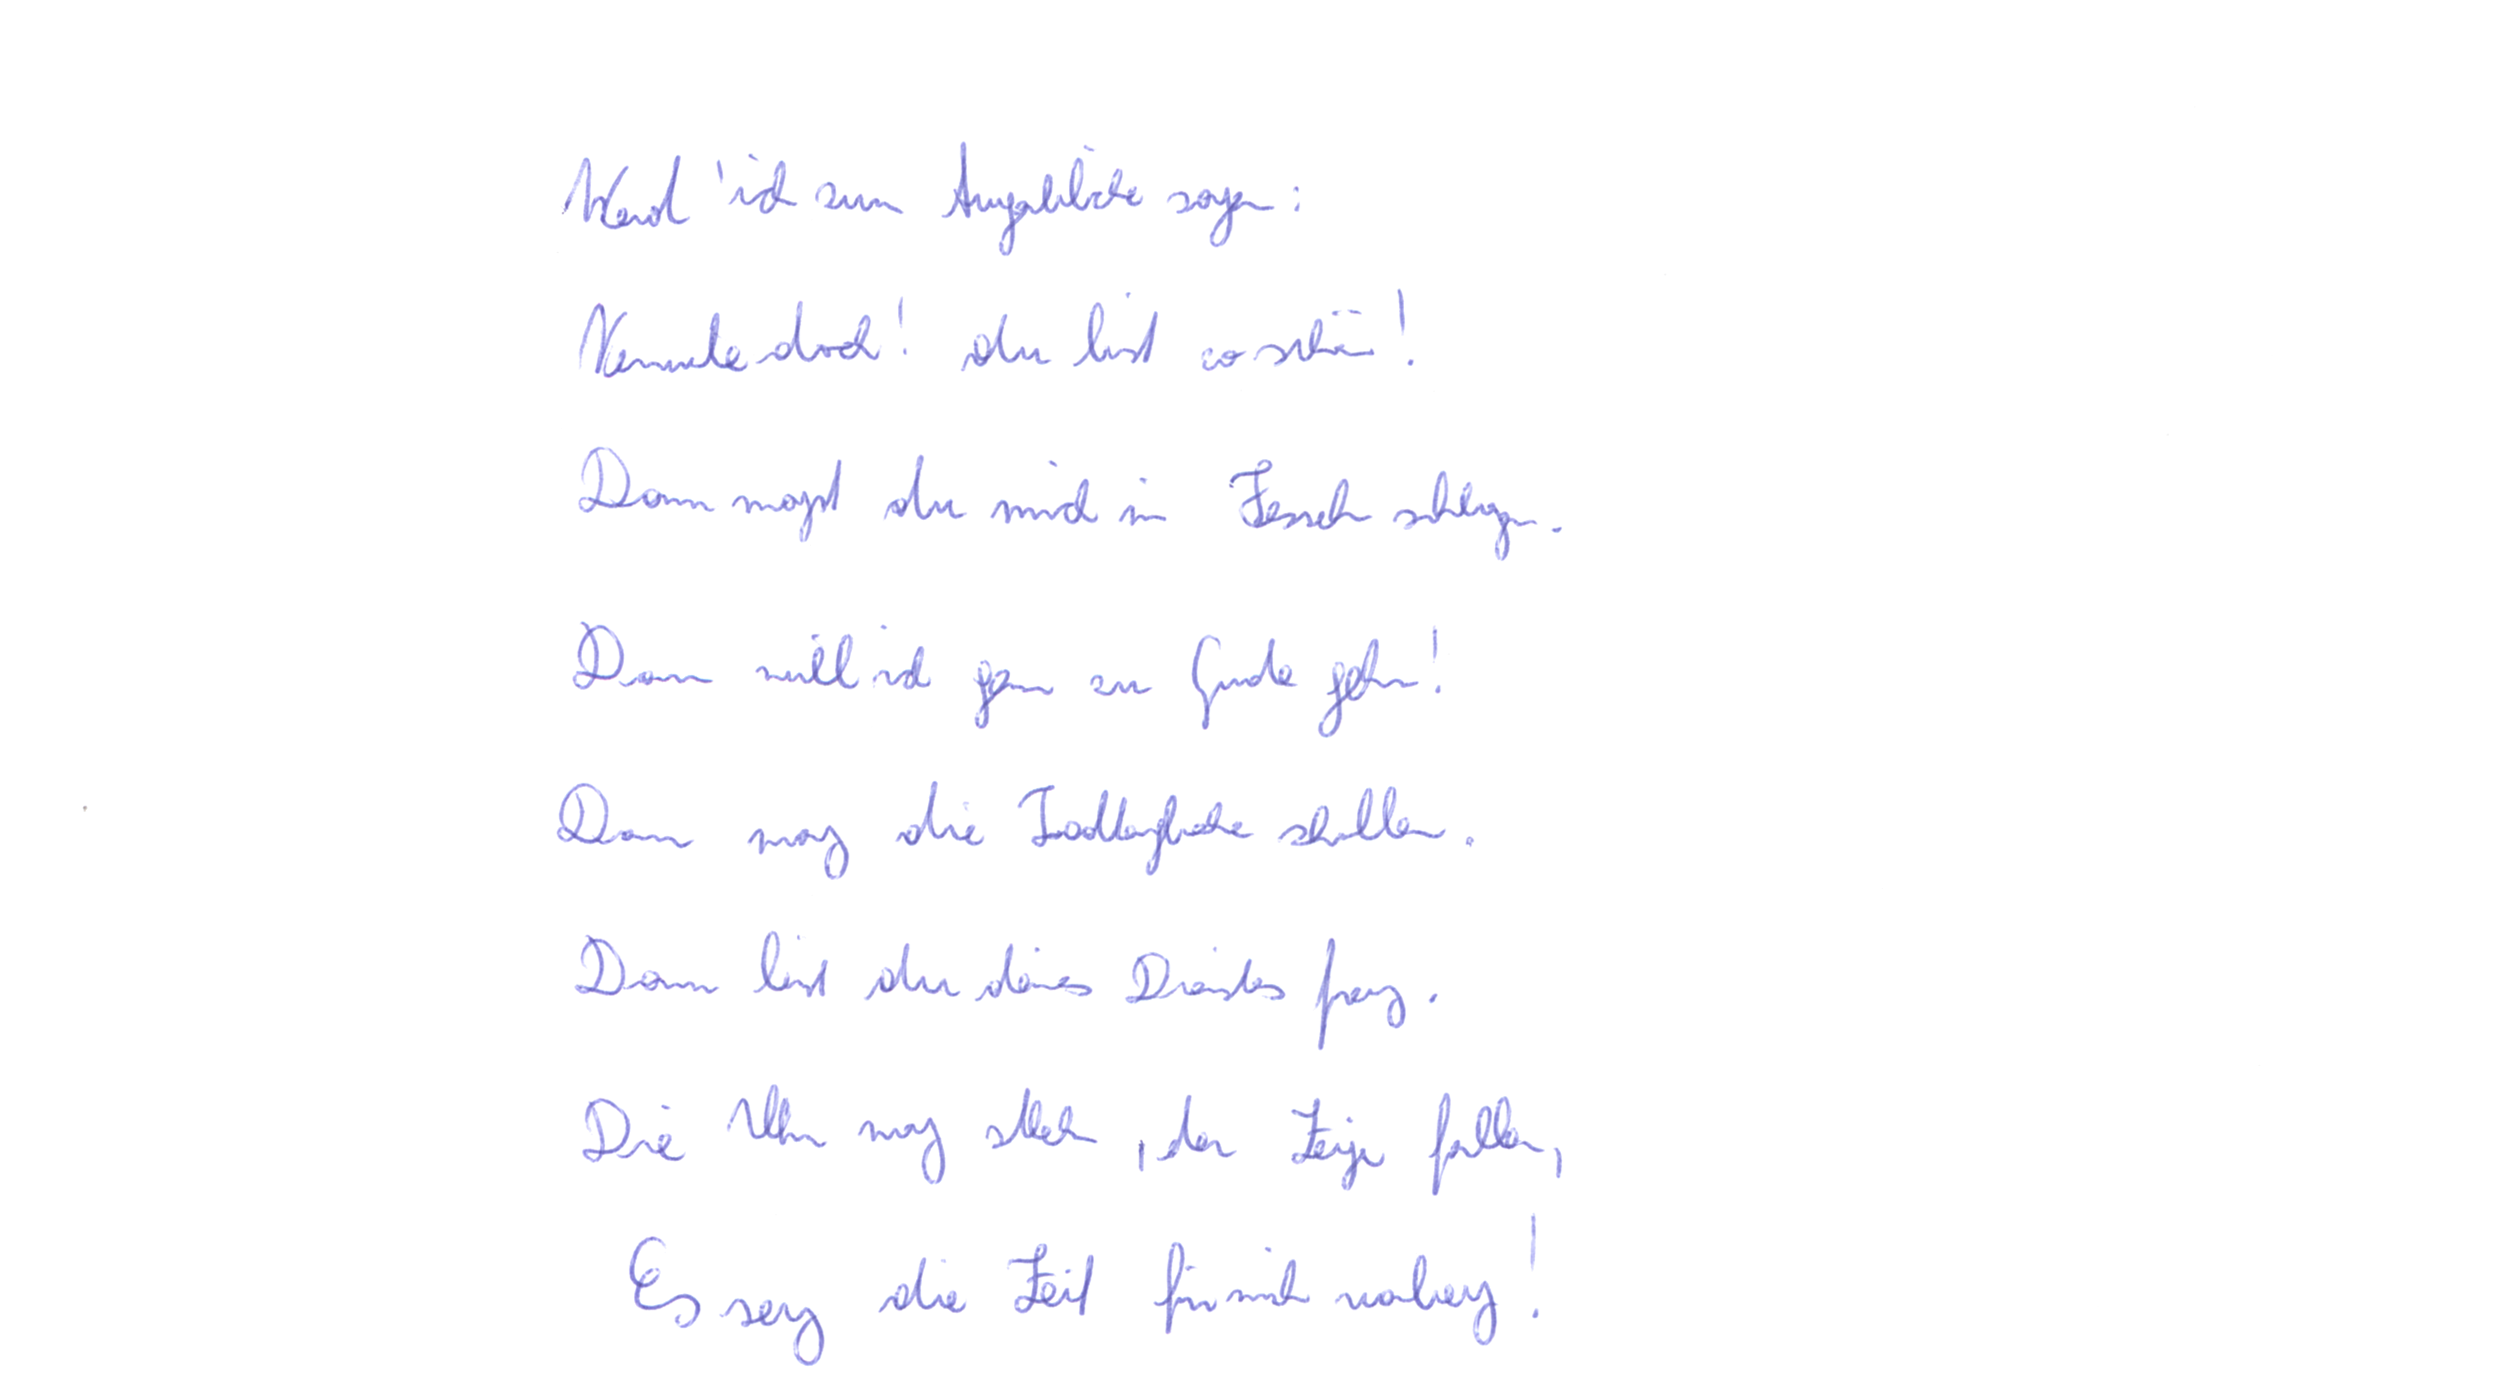 Werd' ich zum Augenblicke sagen:
Verweile doch! du bist so schön!
Dann magst du mich in Fesseln schlagen.
Dann will ich gern zu Grunde gehn!
Dann mag die Todtenglocke schallen.
Dann bist du deines Dienstes frey.
Die Uhr mag stehn, der Zeiger fallen,
Es sey die Zeit für mich vorbey!